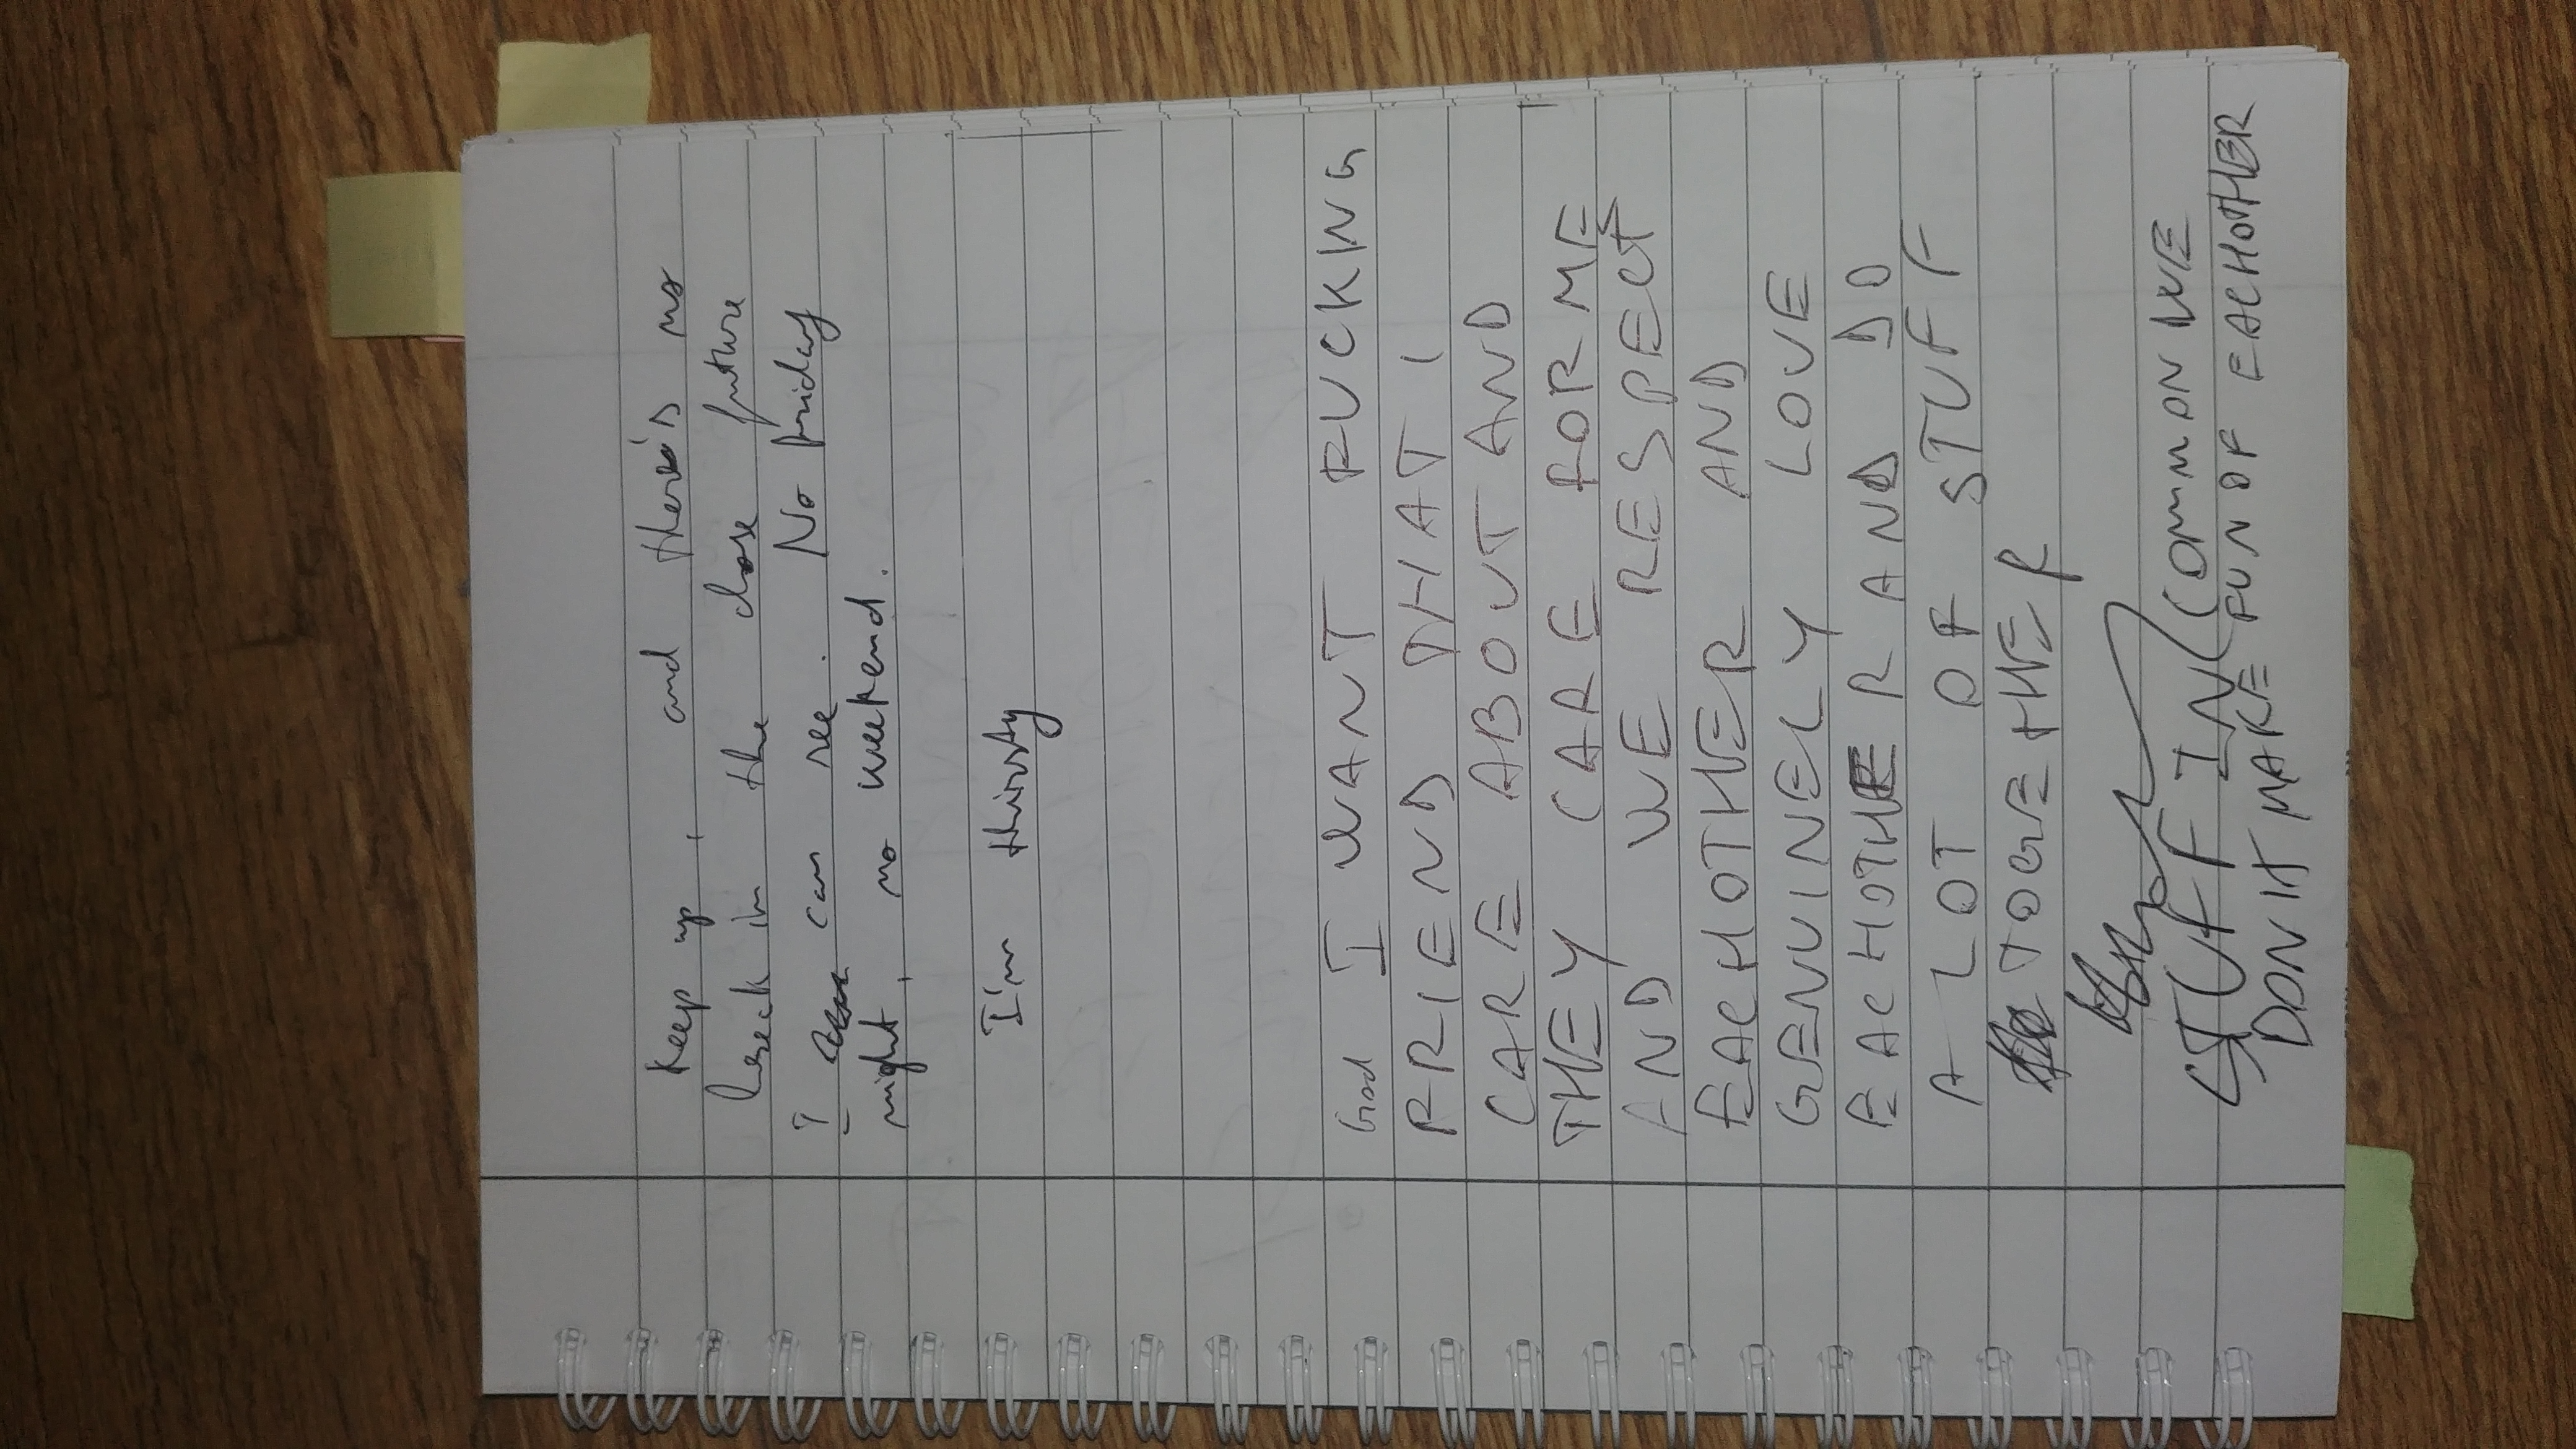 Keep up, and there's no
break in the close future
I can see. No friday
night, no weekend.
I'm thirsty
God I WANT FUCKING
FRIEND THAT I
CARE ABOUT AND
THEY CARE FOR ME
AND WE RESPECT
EACHOTHER AND
GENUINELY LOVE
EACHOTHER AND DO
A LOT OF STUFF
TOGETHER
STUFF IN COMMON WE
DON'T MAKE FUN OF EACHOTHER